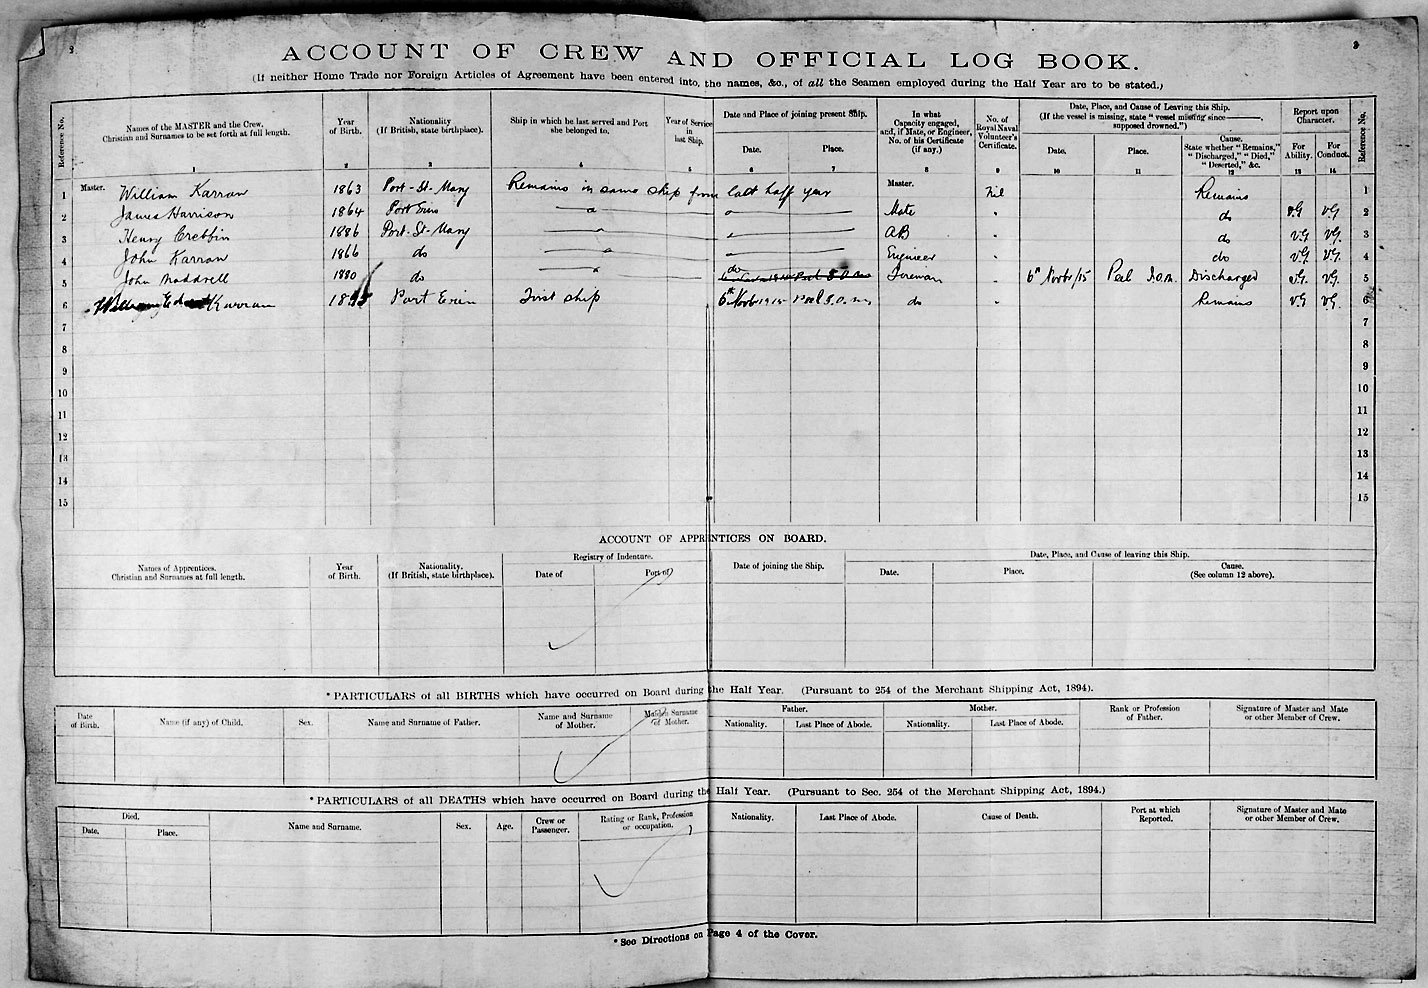 2
3
ACCOUNT OF CREW AND OFFICIAL LOG BOOK.
(If neither Home Trade nor Foreign Articles of Agreement have been entered into, the names, &c., of all the Seamen employed during the Half Year are to be stated.)
Reference No.
Names of the MASTER and the Crew. Christian and Surnames to be set forth at full length.
Year of Birth.
Nationality (If British, state birthplace).
Ship in which he last served and Port she belonged to.
Year of Service in last Ship.
Date and Place of joining present Ship.
Date.
Place.
In what Capacity engaged, and, if Mate, or Engineer, No. of his Certificate (if any.)
No. of Royal Naval Volunteer's Certificate.
Date, Place, and Cause of Leaving this Ship.
(If the vessel is missing, state "vessel missing since ———, supposed drowned.")
Date.
Place.
Cause. State whether "Remains," "Discharged," "Died," "Deserted," &c.
Report upon Character.
For Ability.
For Conduct.
Reference No.
1 2 3 4 5 6 7 8 9 10 11 12 13 14
1 Master. William Karran 1863 Port-St-Mary Remains in same ship from last half year Master. Nil Remains 1
2 James Harrison 1864 Port Erin " " Mate " do V.G V.G. 2
3 Henry Crebbin 1886 Port-St-Mary " " AB " do V.G V.G. 3
4 John Karran 1866 do " " Engineer " do V.G V.G. 4
5 John Maddrell 1880 do " do Fireman " 6th Novbr/15 Peel I.O.M. Discharged V.G. V.G. 5
6 William Karran Port Erin First ship 6th Novbr 1915 Peel I.O.M. do " Remains V.G V.G. 6
7 7
8 8
9 9
10 10
11 11
12 12
13 13
14 14
15 15
ACCOUNT OF APPRENTICES ON BOARD.
Names of Apprentices. Christian and Surnames at full length.
Year of Birth.
Nationality. (If British, state birthplace).
Registry of Indenture.
Date of
Port of
Date of joining the Ship.
Date, Place, and Cause of leaving this Ship.
Date.
Place.
Cause. (See column 12 above).
*PARTICULARS of all BIRTHS which have occurred on Board during the Half Year. (Pursuant to 254 of the Merchant Shipping Act, 1894).
Date of Birth.
Name (if any) of Child.
Sex.
Name and Surname of Father.
Name and Surname of Mother.
Maiden Surname of Mother.
Father.
Nationality.
Last Place of Abode.
Mother.
Nationality.
Last Place of Abode.
Rank or Profession of Father.
Signature of Master and Mate or other Member of Crew.
*PARTICULARS of all DEATHS which have occurred on Board during the Half Year. (Pursuant to Sec. 254 of the Merchant Shipping Act, 1894.)
Died.
Date.
Place.
Name and Surname.
Sex.
Age.
Crew or Passenger.
Rating or Rank, Profession or occupation.
Nationality.
Last Place of Abode.
Cause of Death.
Port at which Reported.
Signature of Master and Mate or other Member of Crew.
*See Directions on Page 4 of the Cover.